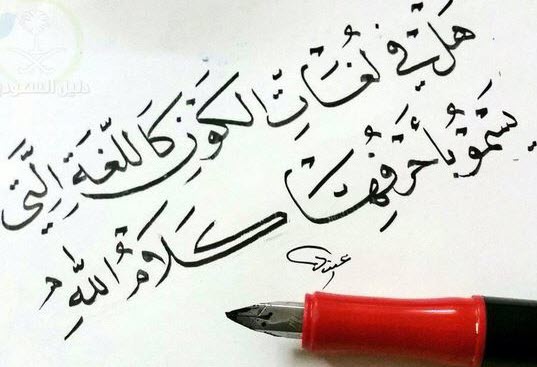 هَلْ في لُغَاتِ الكَوْنِ كَاللُّغَةِ الَّتي
يَسْمُو بِأَحْرُفِهَا كَلَامُ اللهِ
دليل السعودية